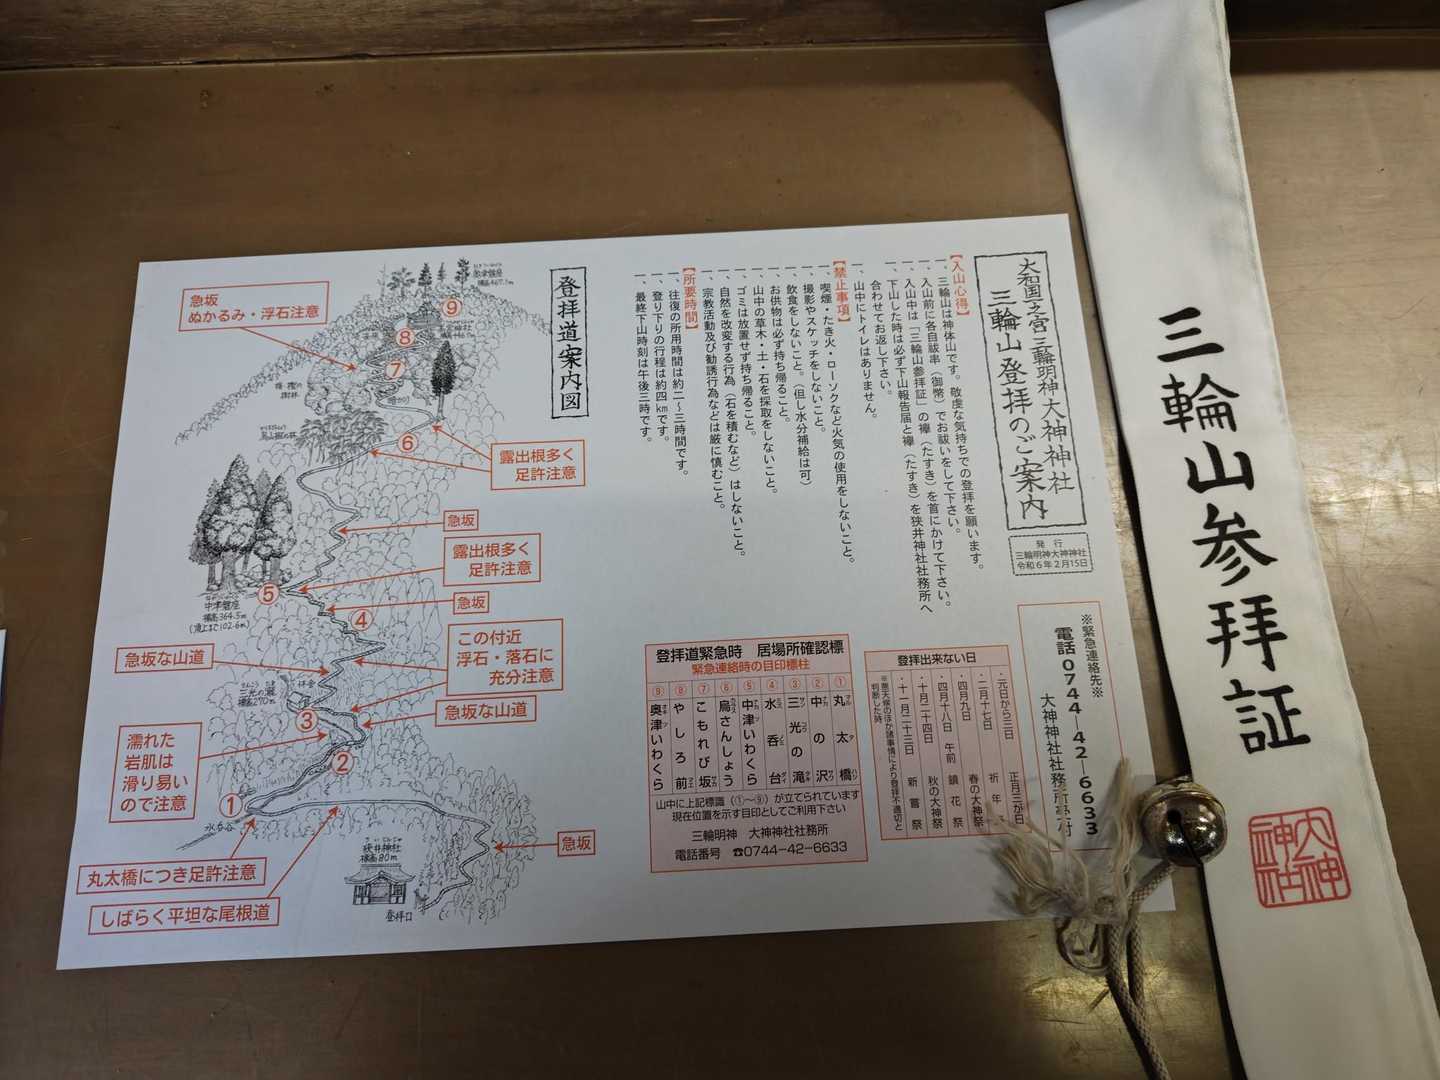 大和国一之宮 三輪明神 大神神社
三輪山登拝のご案内
発行
三輪明神大神神社
令和6年2月15日
【入山心得】
一、三輪山は神体山です。敬虔な気持ちでの登拝を願います。
一、入山前に各自祓串（御幣）でお祓いをして下さい。
一、入山中は「三輪山参拝証」の襷（たすき）を首にかけて下さい。
一、下山した時は必ず下山報告届と襷（たすき）を狭井神社社務所へ
合わせてお返し下さい。
一、山中にトイレはありません。
【禁止事項】
一、喫煙・たき火・ローソクなど火気の使用をしないこと。
一、撮影やスケッチをしないこと。
一、飲食をしないこと。（但し水分補給は可）
一、お供物は必ず持ち帰ること。
一、山中の草木・土・石を採取をしないこと。
一、ゴミは放置せず持ち帰ること。
一、自然を改変する行為（石を積むなど）はしないこと。
一、宗教活動及び勧誘行為などは厳に慎むこと。
【所要時間】
一、往復の所用時間は約二～三時間です。
一、登り下りの行程は約四㎞です。
一、最終下山時刻は午後三時です。
※緊急連絡先※
電話0744―42―6633
大神神社社務所
登拝出来ない日
・元日から三日 正月三が日
・二月十七日 祈年
・四月九日 春の大神祭
・四月十八日 午前 鎮花祭
・十月二十四日 秋の大神祭
・十一月二十三日 新嘗祭
※荒天候のほか諸事情により登拝不適切と
判断した時
登拝道緊急時 居場所確認標
緊急連絡時の目印標柱
① 丸太橋
② 中の沢
③ 三光の滝
④ 水呑台
⑤ 中津いわくら
⑥ 烏さんしょう
⑦ こもれび坂
⑧ やしろ前
⑨ 奥津いわくら
山中に上記標識（①～⑨）が立てられています
現在位置を示す目印としてご利用下さい
三輪明神 大神神社社務所
電話番号 ☎0744―42―6633
登拝道案内図
奥津磐座
標高467.1m
⑨
急坂
ぬかるみ・浮石注意
⑧
⑦
⑥
露出根多く
足許注意
急坂
露出根多く
足許注意
⑤
中津磐座
標高364.5m
(頂上まで102.6m)
急坂
④
この付近
浮石・落石に
充分注意
急坂な山道
三光の瀧
標高270m
③
急坂な山道
濡れた
岩肌は
滑り易い
ので注意
②
①
急坂
狭井神社
標高80m
登拝口
丸太橋につき足許注意
しばらく平坦な尾根道
三輪山参拝証
大神
神社